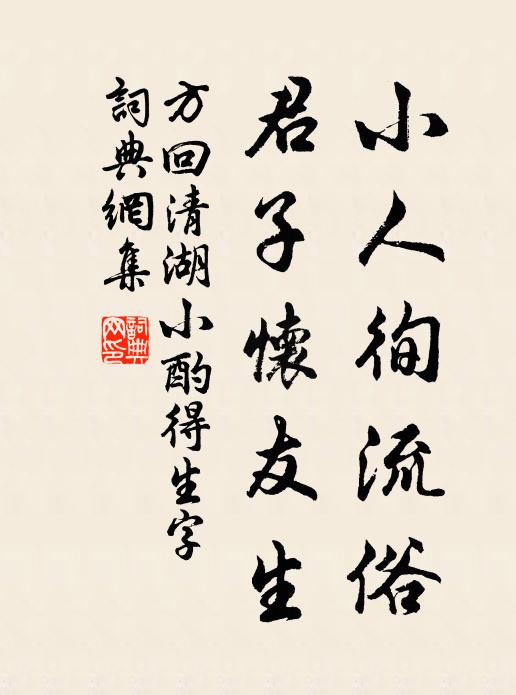 小人徇流俗
君子懷友生
方回清湖小酌得生字
詞典網集
詞典網印